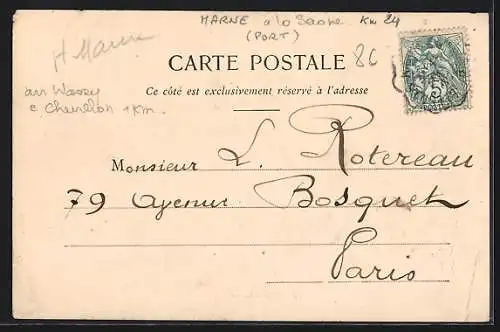 MARNE à la Saone Km 24
(PORT)
H Marne
86
CARTE POSTALE
arr Wassy
c Chevillon 1 Km.
Ce côté est exclusivement réservé à l'adresse
Monsieur L. Rotereau
79 avenue Bosquet
Paris